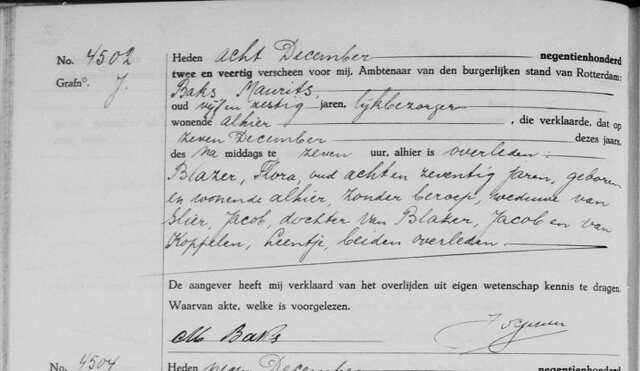 No. 4502
Grafn°. J.
Heden acht December negentienhonderd
twee en veertig verscheen voor mij, Ambtenaar van den burgerlijken stand van Rotterdam:
Baks Maurits,
oud vijf en zestig jaren, lykbezorger
wonende alhier, die verklaarde, dat op
zeven December dezes jaars,
des na middags te zeven uur, alhier is overleden:
Blazer, Flora, oud acht en zeventig jaren, geboren
en wonende alhier, zonder beroep, weduwe van
Slier, Jacob, dochter van Blazer, Jacob en van
Koppelen, Leentje, beiden overleden
De aangever heeft mij verklaard van het overlijden uit eigen wetenschap kennis te dragen.
Waarvan akte, welke is voorgelezen.
M Baks
No. 4504
Heden negen December negentienhonderd